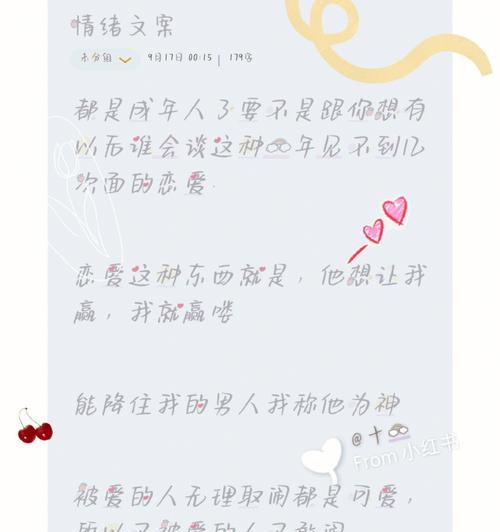 情绪文案
未分组 9月17日 00:15 | 179字
都是成年人了要不是跟你想有
以后谁会谈这种一年见不到几
次面的恋爱.
恋爱这种东西就是，他想让我
赢，我就赢喽
能降住我的男人我称他为神
@十
From 小红书
被爱的人无理取闹都是可爱，
所以只被爱的人可敢闹